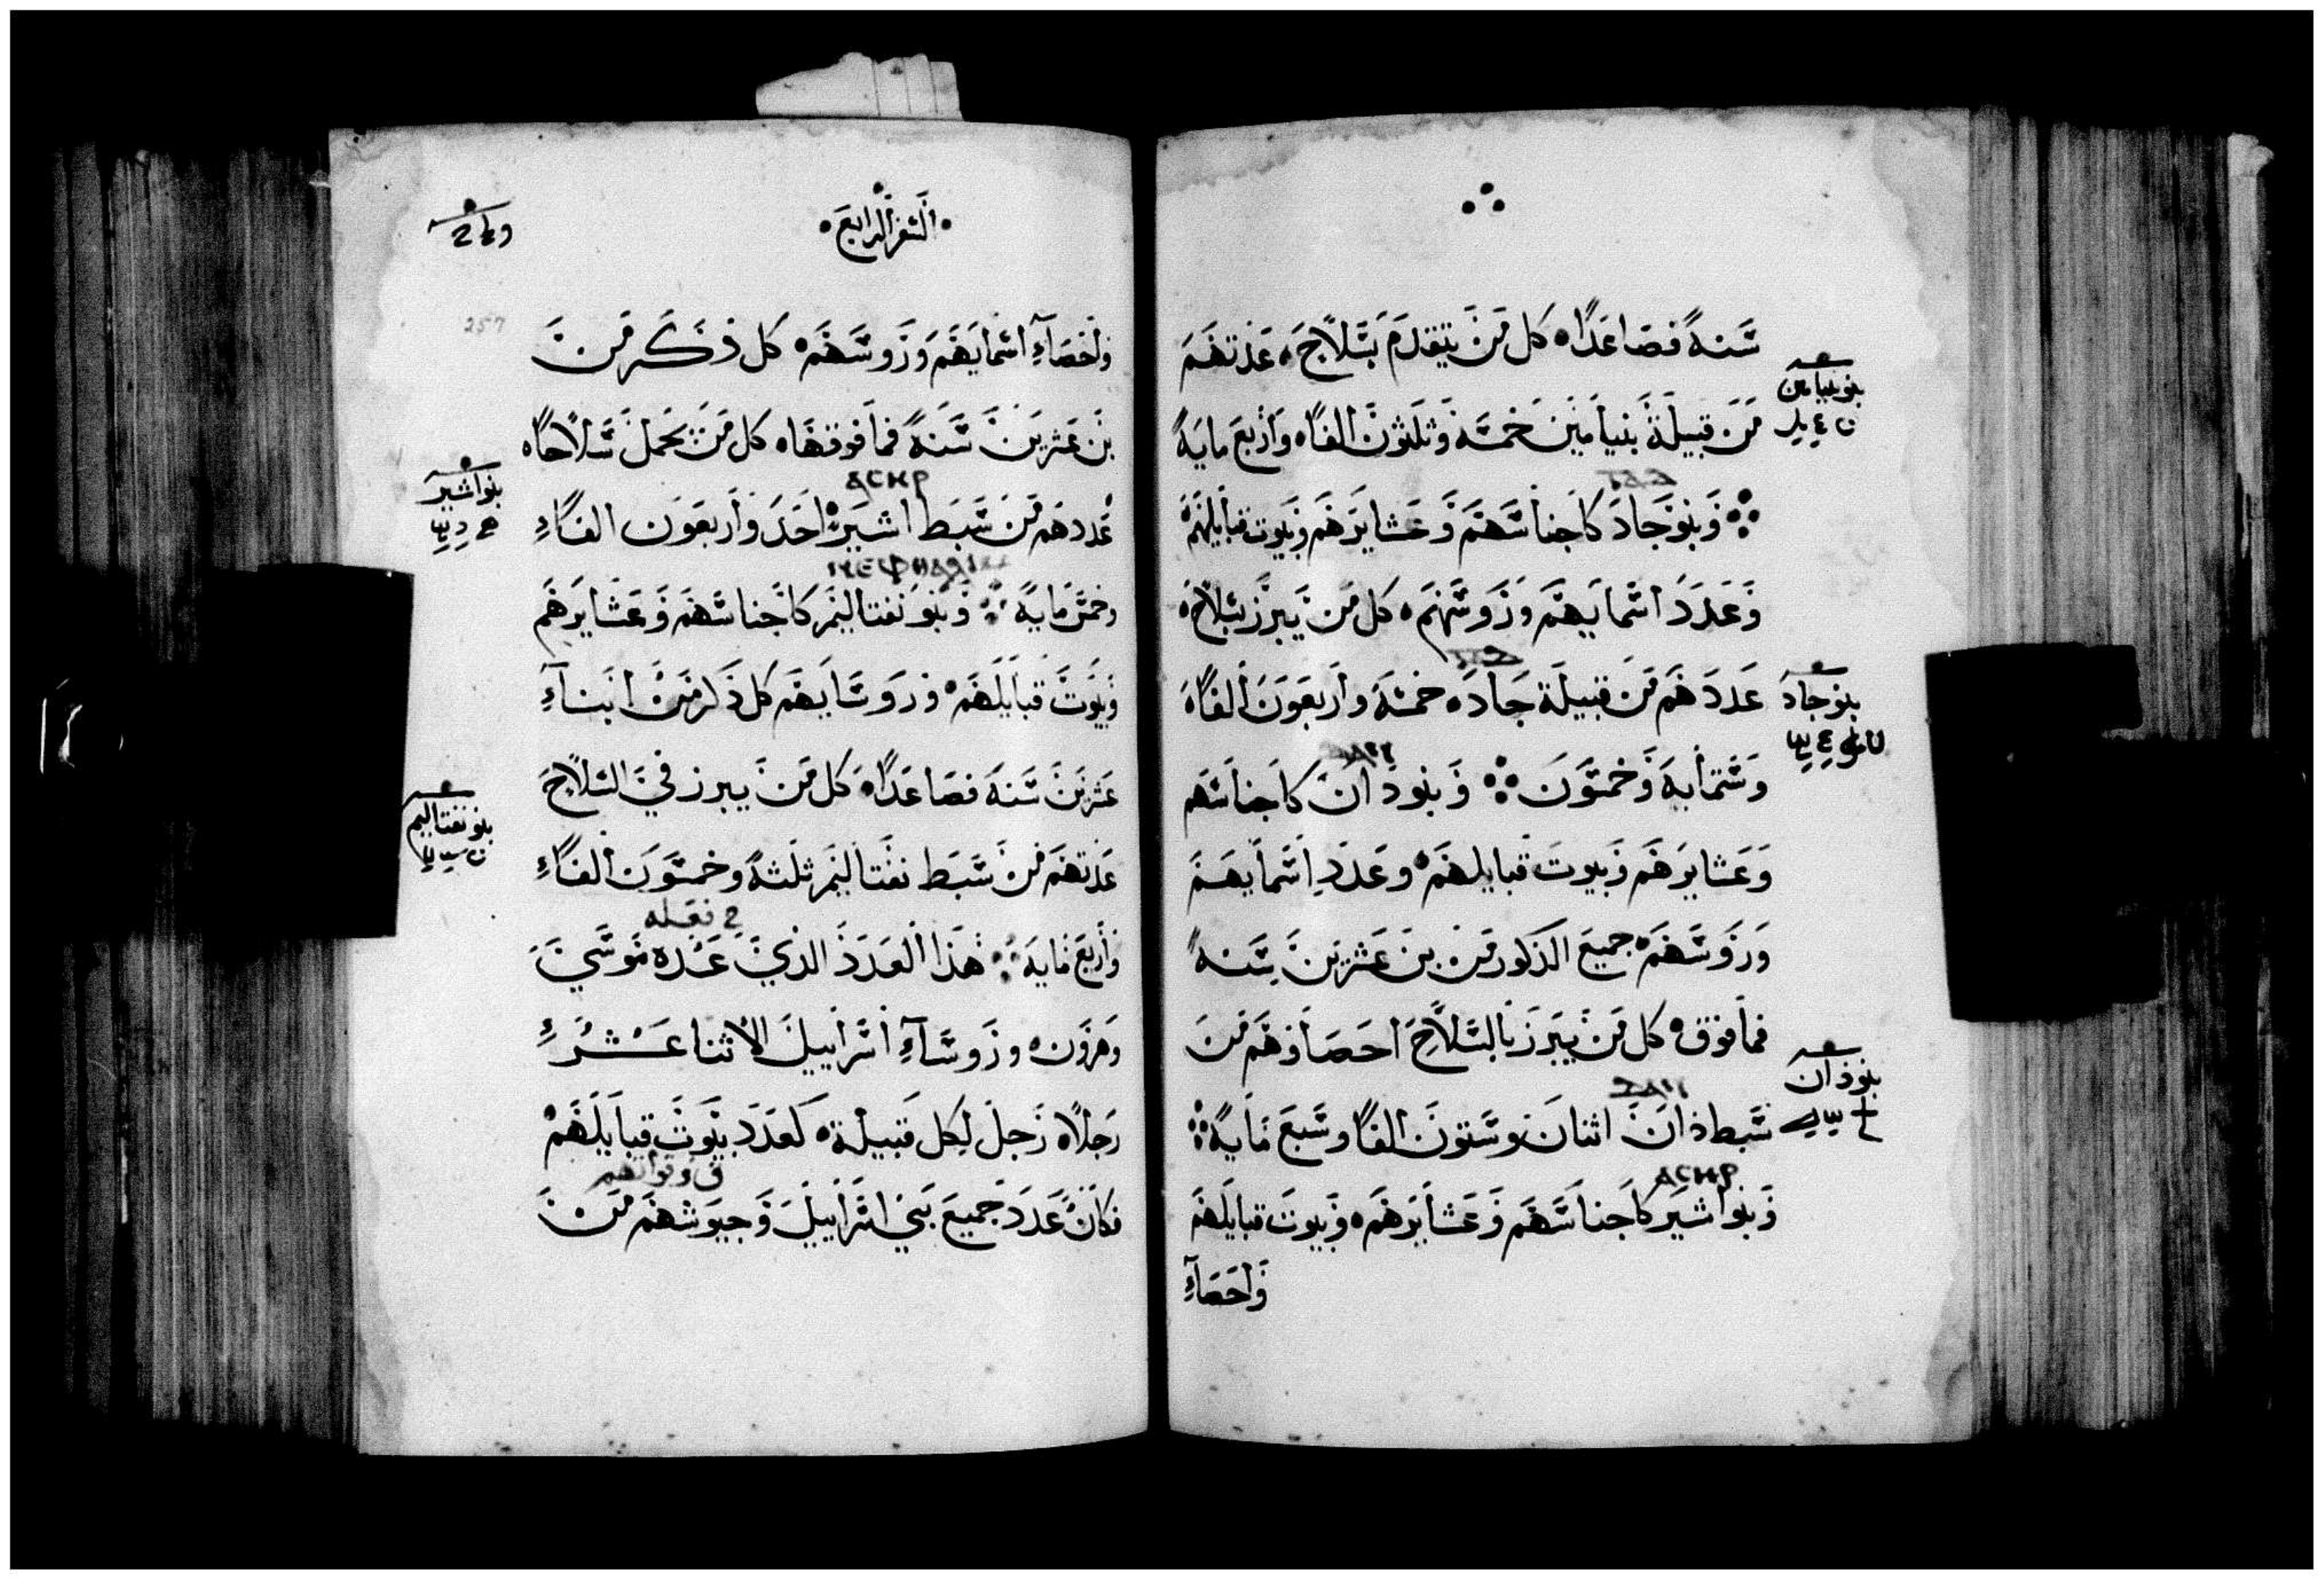 سنة فصاعدا كل من يتقدم بسلاح عدتهم
بنو بنيامين
من قبيلة بنيامين خمسة وثلثون الفا واربع ماية
وبنو جاد كاجناسهم وعشايرهم وبيوت قبايلهم
وعدد اسمايهم وروسهم كل من يبرز بسلاح
عددهم من قبيلة جاد خمسة واربعون الفا
بنو جاد
وستماية وخمسون وبنو دان كاجناسهم
وعشايرهم وبيوت قبايلهم وعدد اسمايهم
وروسهم جميع الذكور من بن عشرين سنة
فما فوق كل من يبرز بالسلاح احصاوهم من
بنو دان
سبط دان اثنان وستون الفا وسبع ماية
ⲁⲥⲏⲣ
وبنو اشير كاجناسهم وعشايرهم وبيوت قبايلهم
واحصآء
السفر الرابع
257
واحصآء اسمايهم وروسهم كل ذكر من
بن عشرين سنة فما فوقها كل من يحمل سلاحا
بنو اشير
ⲁⲥⲏⲣ
عددهم من سبط اشير احد واربعون الفا
وخمس ماية وبنو نفتاليم كاجناسهم وعشايرهم
وبيوت قبايلهم وروسايهم كل ذكر من ابنآء
عشرين سنة فصاعدا كل من يبرز في السلاح
بنو نفتاليم
عدتهم من سبط نفتاليم ثلثة وخمسون الفا
واربع ماية هذا العدد الذي عده موسي
وهرون وروسآء اسراييل الاثنا عشر
رجلا رجل لكل قبيلة كعدد بيوت قبايلهم
وقواتهم
فكان عدد جميع بني اسراييل وجيوشهم من